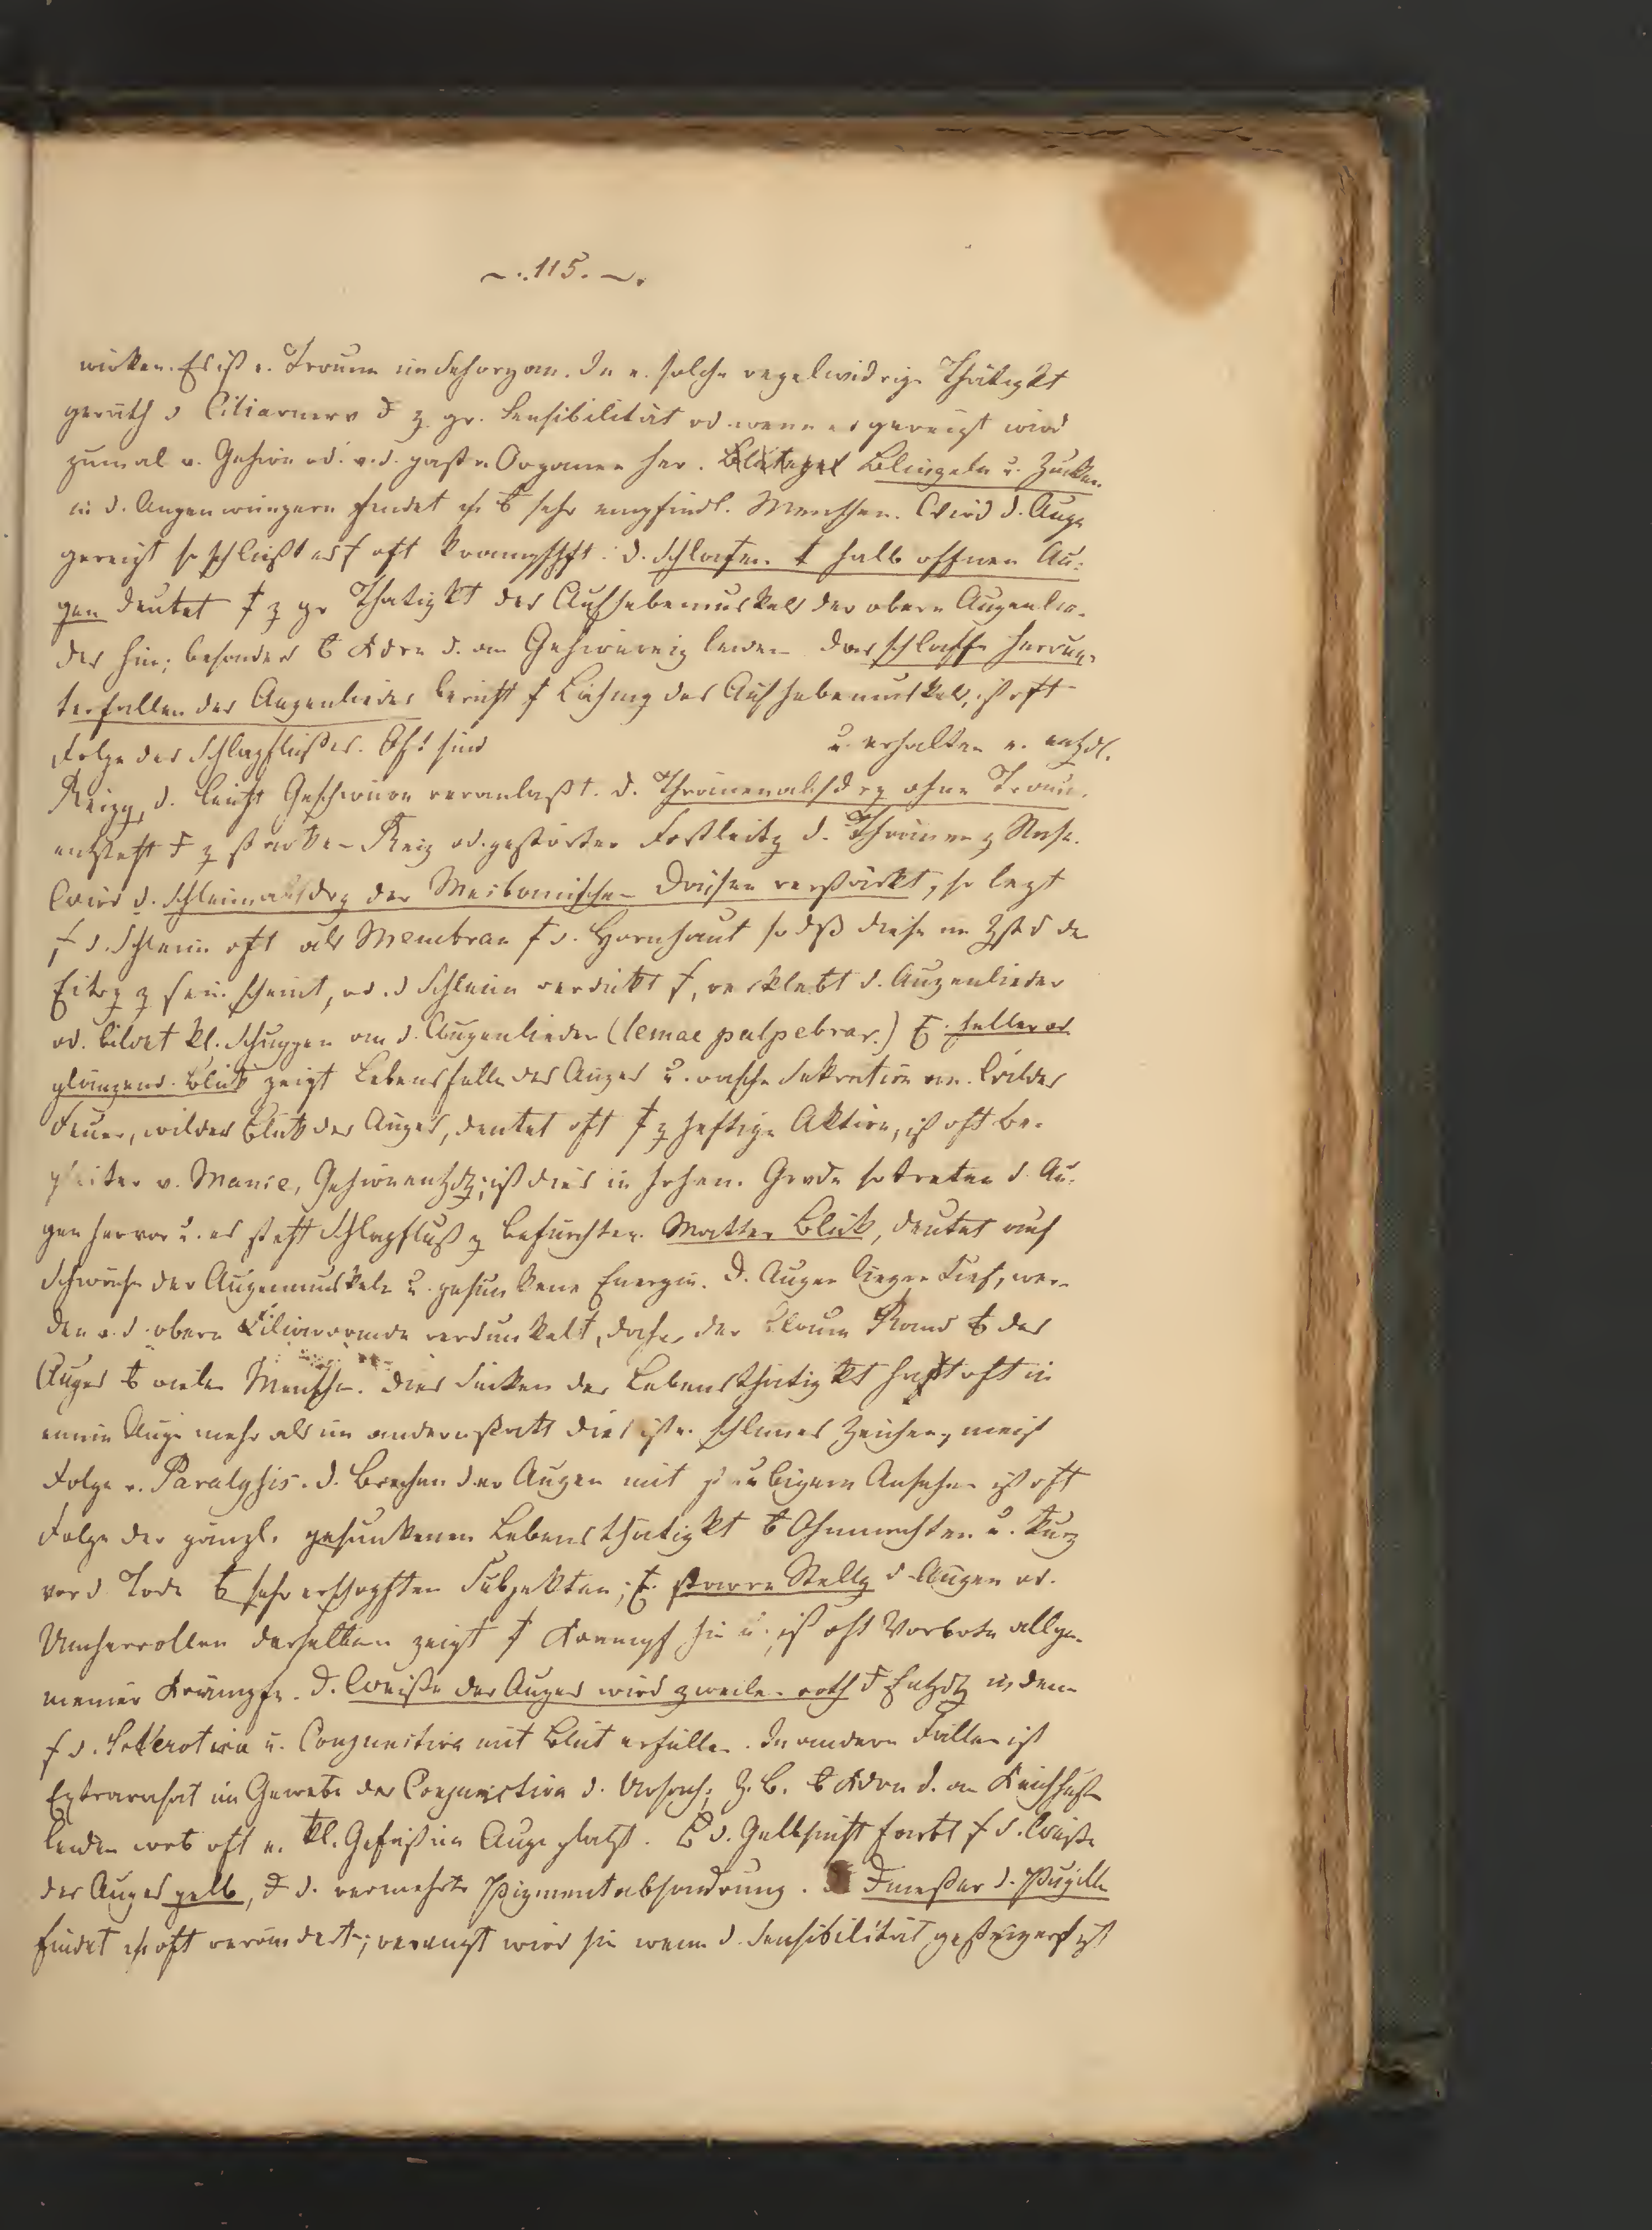 ~. 115. ~.
wirken. Es ist e. Traum im Sehorgan. In e. solche regelwidrige Thätigkt
geräth d Ciliarnerv d z gr. Sensibilität od. wenn er gereizt wird
zumal v. Gehirn od. v. d. gastr. Organen her. Blinzeln u. Zucken
in d. Augenwimpern findet sich b sehr empfindl. Menschen. Wird d. Auge
gereizt so schließt es oft krampfhft. D. Schlafen halb offnen Au-
gen deutet z gr Thätigkt des Aufhebemuskels der obern Augenlie-
der hin; besonders b Kdrn d. an Gehirnreiz leiden das schlaffe herun-
terfallen des Augenliedes beruht Lähmg des Aufhebemuskels, ist oft
Folge des Schlagflußes. Oft sind u. erhalten e. entzdl.
Reizg, d. leicht Geschwüre veranlaßt. D. Thränenabsdrg ohne Traur.
entsteht d z starken Reiz od. gestörter Fortleitg d. Thränen z Nase.
Wird d. Schleimabsdrg der Meibomischen Drüsen verstärkt, so legt
d. Schleim oft als Membran d. Hornhaut so dß diese im Zstd de
Eitrg z sein scheint, od. d Schleim verdickt, verklebt d. Augenlieder
od. bildet kl. Schuppen an d. Augenlieder (lemae palpebrar.) E. heller od
glänzend. Blick zeigt Lebensfülle des Auges u. rasche Sekretion an. Wildes
Feuer, wilder Blick des Auges, deutet oft z heftige Aktion, ist oft Be-
gleiter v. Manie, Gehirnentzdg; ist dies in hohem Grade so treten d. Au-
gen hervor u. es steht Schlagfluß z befürchten. Matter Blick, deutet auf
Schwäche der Augenmuskeln u. gesunkene Energie. D. Augen liegen tief, wer-
den v. d. obern Ciliarrande verdunkelt, daher der blaue Rand b des
Auges b vielen Menschen. Dies Sinken der Lebensthätigkt hat oft in
einem Auge mehr als im andern statt dies ist e. schlimes Zeichen, meist
Folge v. Paralysis. D. Brechen der Augen mit staubigem Ansehen ist oft
Folge der gänzl. gesunkenen Lebensthätigkt b Ohnmachten u. kurz
vor d Tode b sehr erschöpften Subjekten; E. starre Stellg d Augen od.
Umherrollen derselben zeigt Krampf hin u. ist oft Vorbote allge-
meiner Krämpfe. D. Weiße des Auges wird zweilen roth d Entzdg indem
d. Sclerotica u. Conjunctiva mit Blut erfüllen. In andern Fällen ist
Extravasat im Gewebe der Conjunctiva d. Ursach; z. B. b Kdrn d. an Keichhusten
leiden wo oft e. kl. Gefäß im Auge platzt. B d. Gelbsucht färbt d. Weiße
des Auges gelb, d d. vermehrte Pigmentabsondrung. D Dmeßer d. Pupille
findet sich oft verändert; verengt wird sie wenn d. Sensibilität gesteigert ist